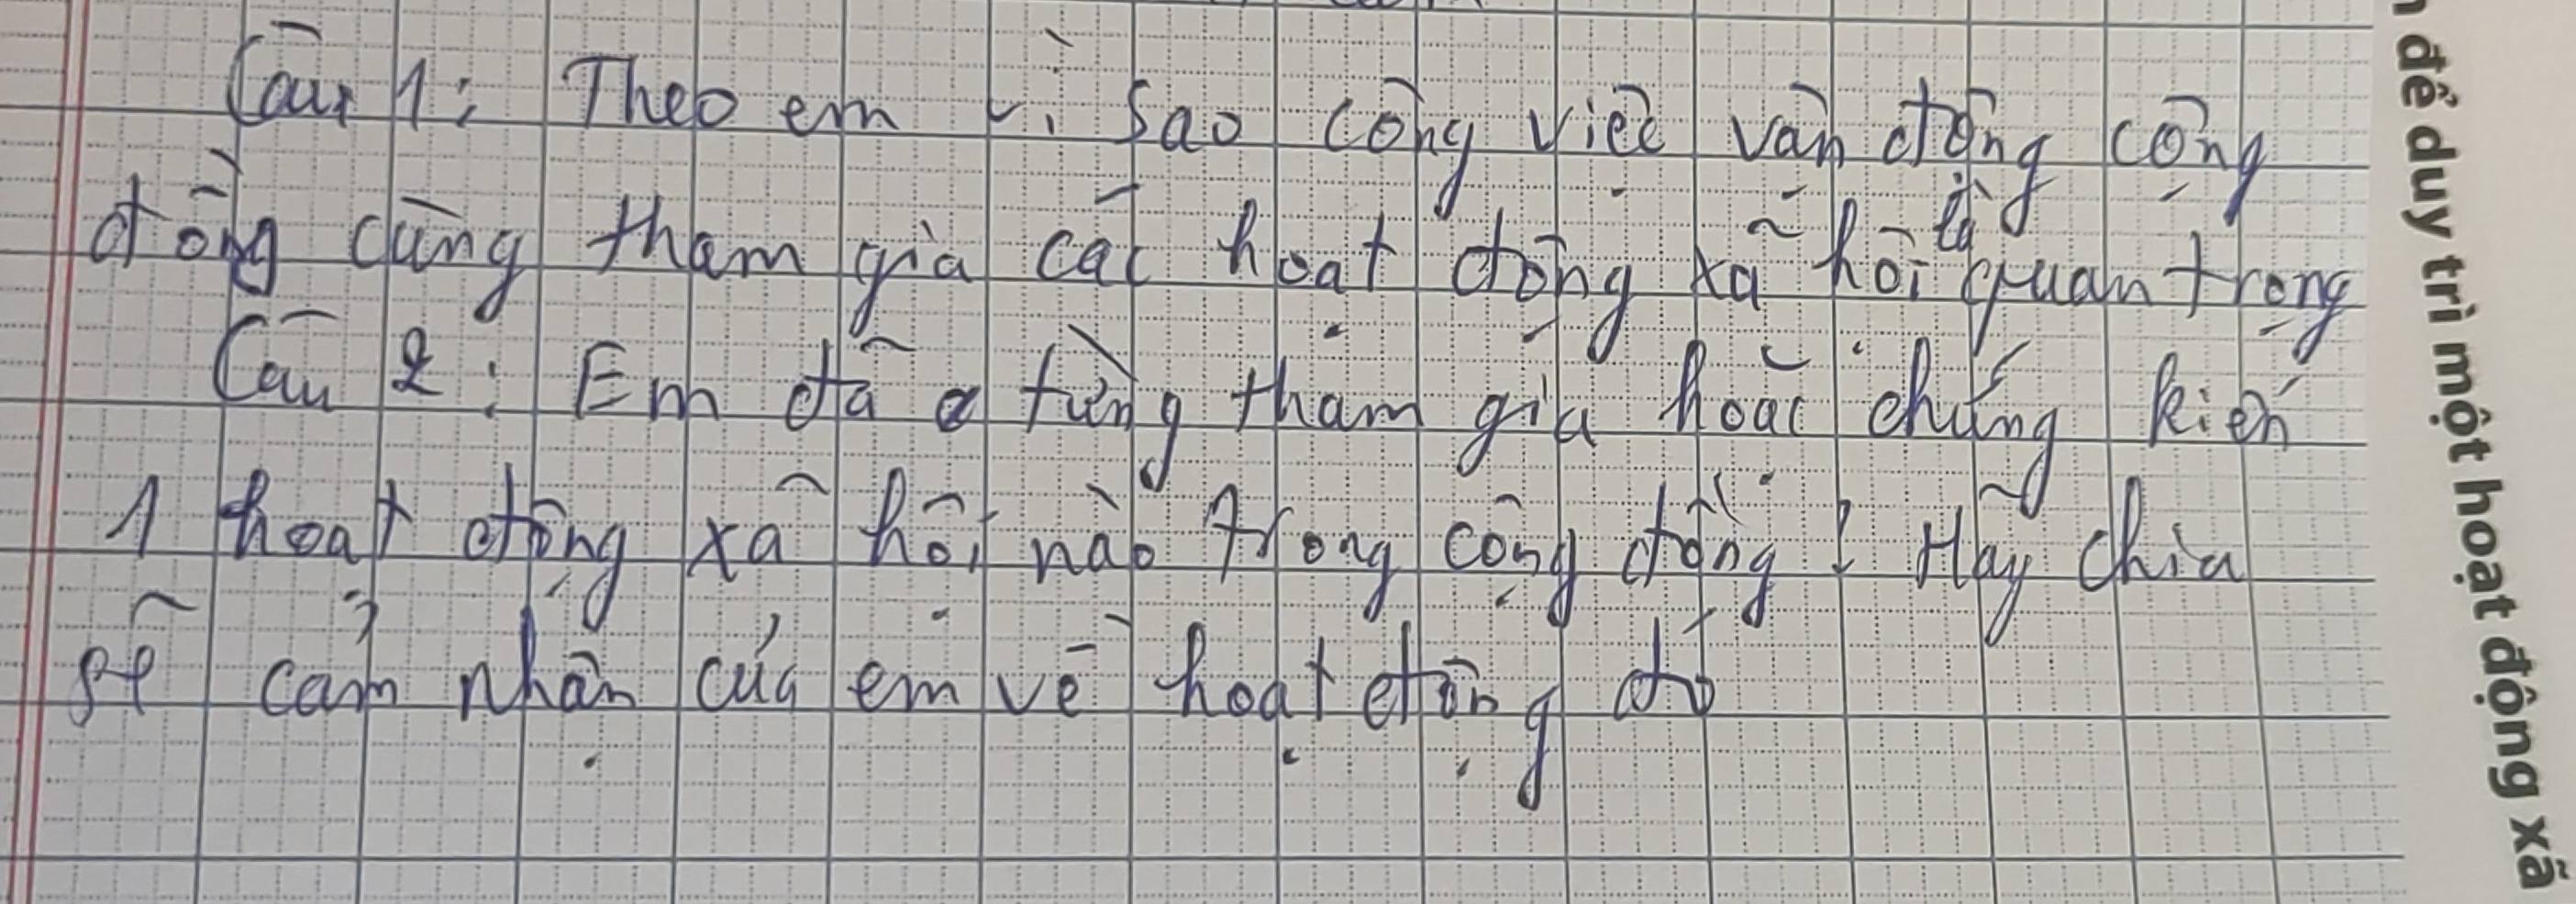 Câu 1: Theo em vì sao công việc vận động cộng
đồng cùng tham gia các hoạt động xã hội là quan trọng
Câu 2: Em đã từng tham gia hoặc chứng kiến
1 hoạt động xã hội nào trong cộng đồng ? Hãy chia
sẽ cảm nhận của em về hoạt động đó
để duy trì một hoạt động xã